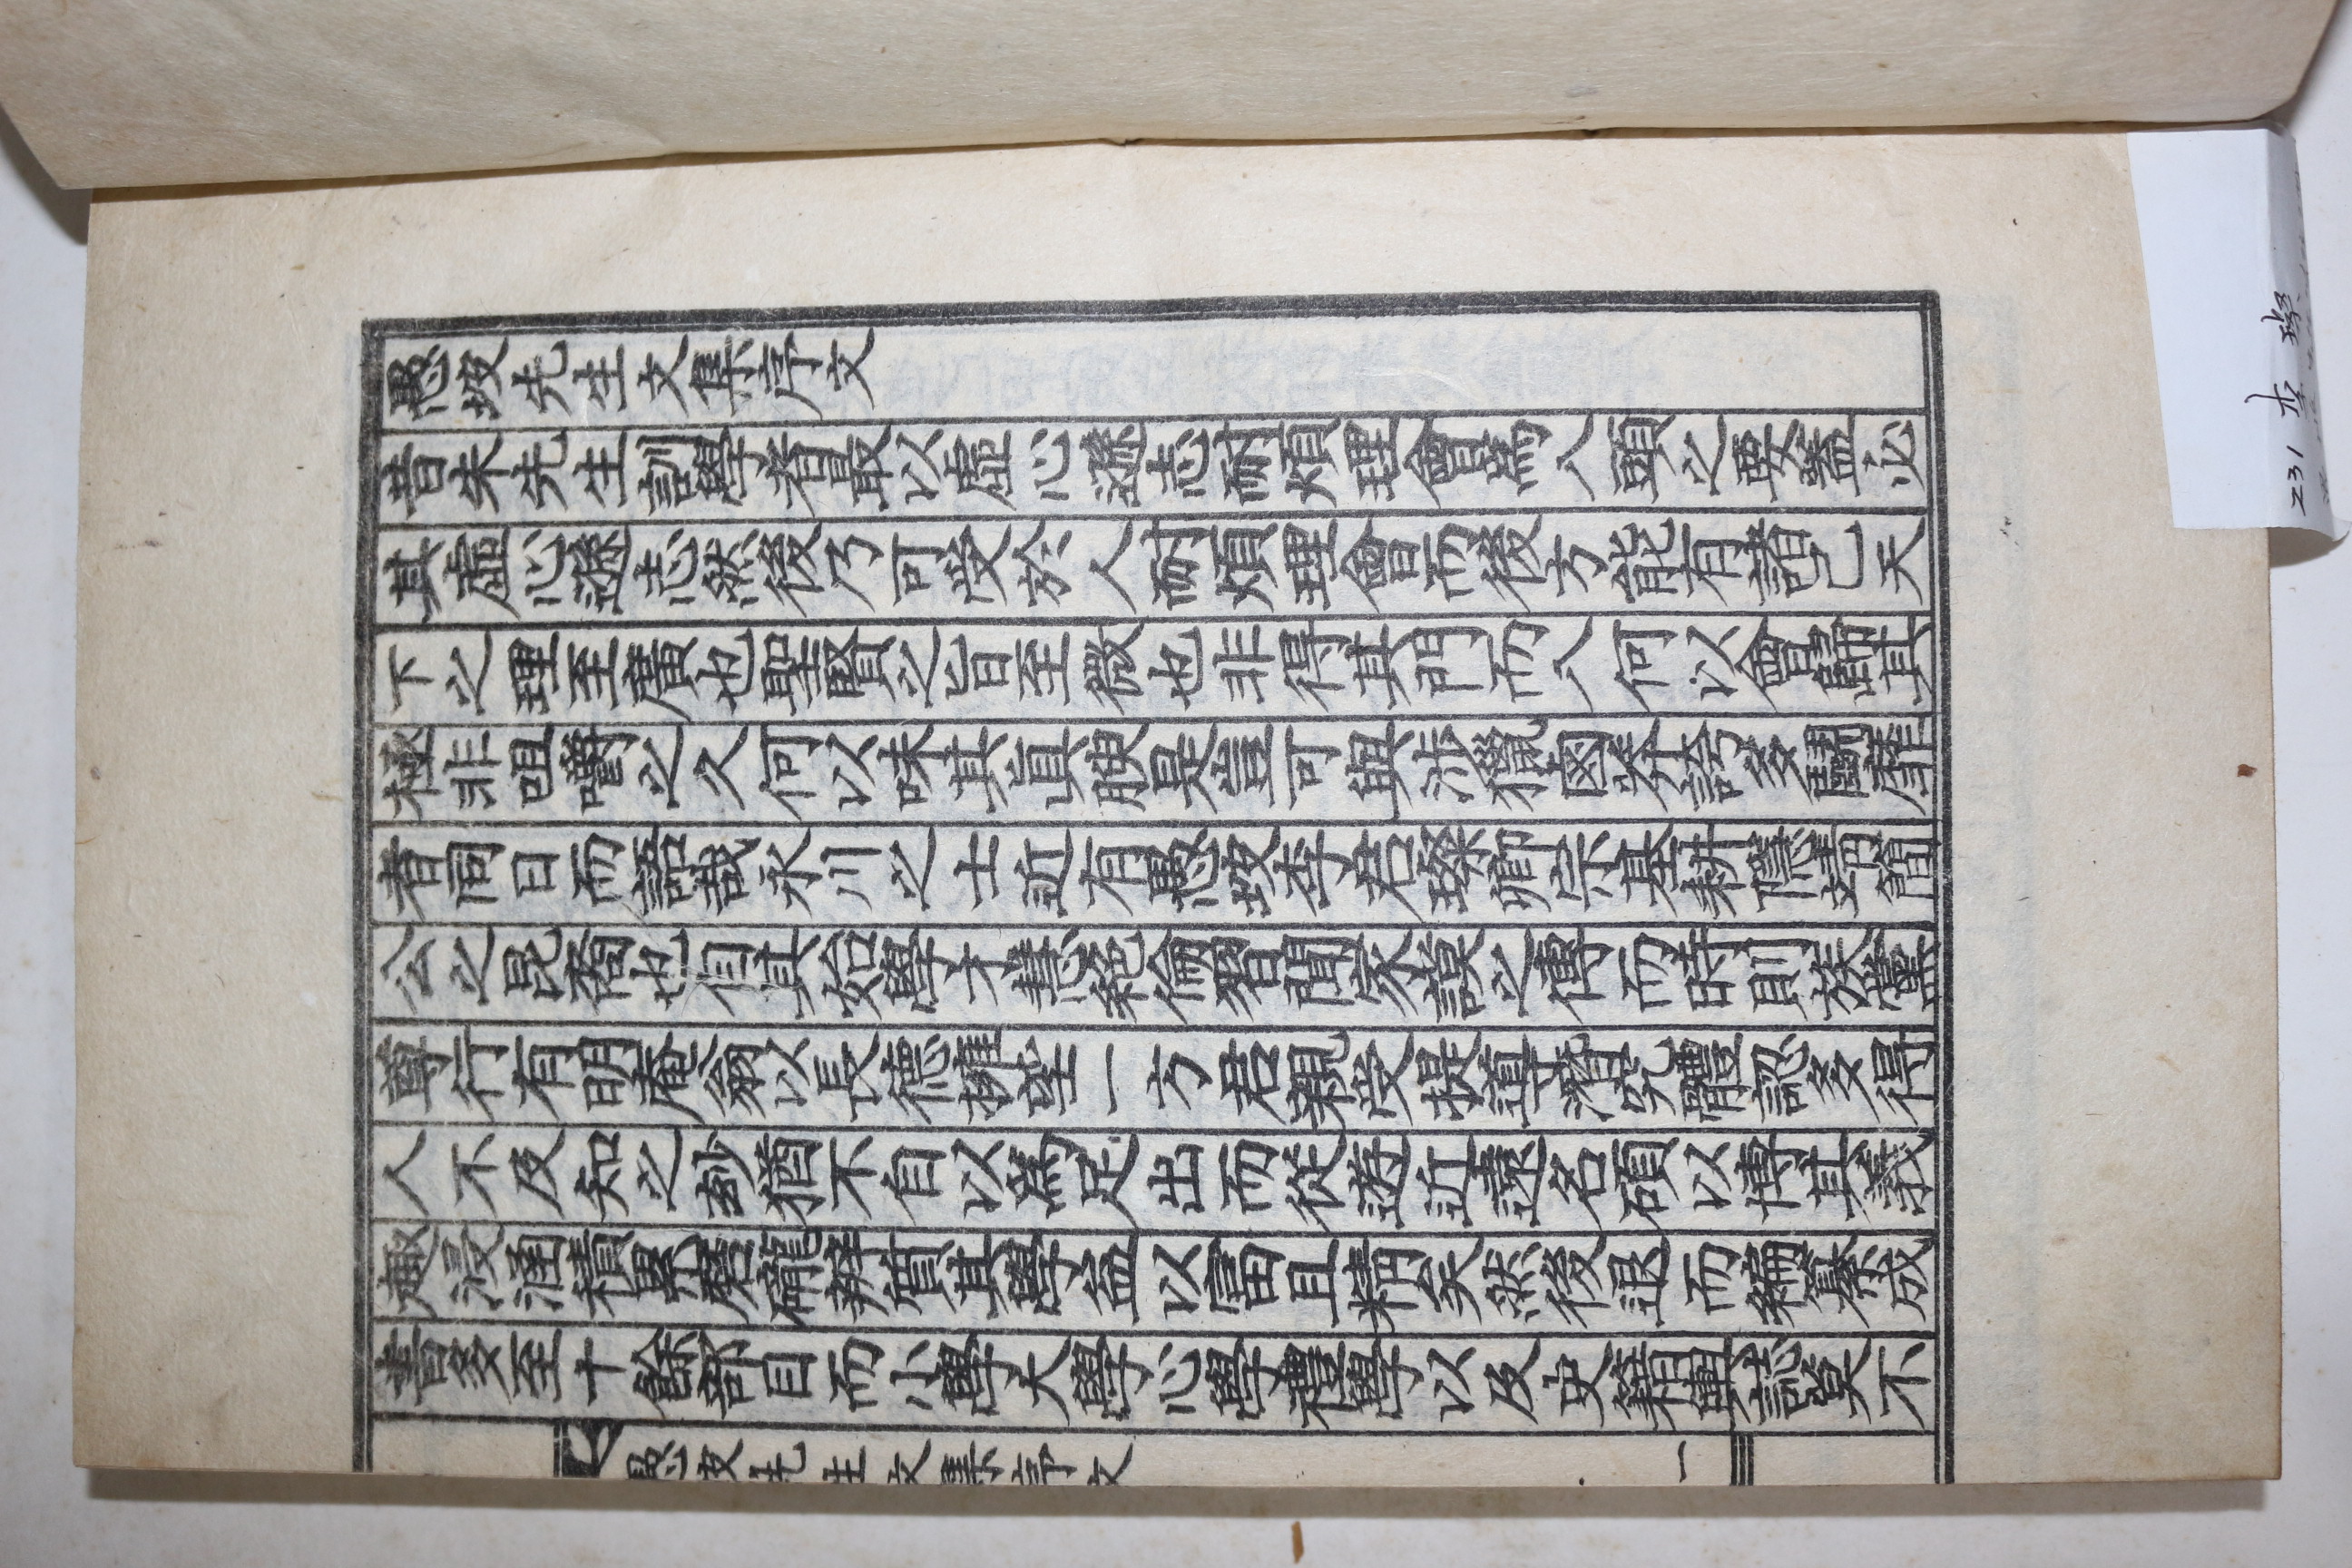 愚坡先生文集序文
昔朱先生訓學者最以虛心遜志耐煩理會爲入頭之要蓋必
其虛心遜志然後乃可受於人耐煩理會而後方能有諸己天
下之理至廣也聖賢之旨至微也非得其門而入何以會歸其
極非咀嚼之久何以味其眞腴是豈可與涉獵鹵莽誇多鬪靡
者同日而語哉永川之士近有愚坡李君璨卿宗基耕隱靖簡
公之昆裔也自其始學才慧絕倫習聞家謨之傳而時則族黨
尊行有明庵翁以長德擁望一方君親受提導潛究體認多得
人不及知之玅猶不自以爲足出而從遊近遠名碩以博其義
趣浸涵積累磨礲辨質其學益以富且精矣然後退而編纂成
書多至十餘部目而小學大學心學禮學以及史籍輿誌莫不
愚坡先生文集序文 一
231 李 璨